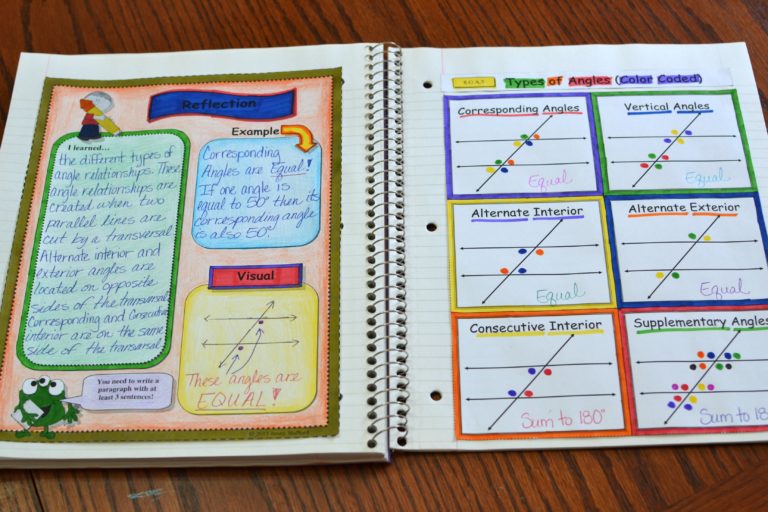 Reflection
I learned...
the different types of
angle relationships. These
angle relationships are
created when two
parallel lines are
cut by a transversal.
Alternate interior and
exterior angles are
located on opposite
sides of the transversal.
Corresponding and Consecutive
interior are on the same
side of the transversal
You need to write a
paragraph with at
least 3 sentences!
Example
Corresponding
Angles are Equal!
If one angle is
equal to 50° then its
corresponding angle
is also 50°.
Visual
These angles are
EQUAL!
8.G.A.5
Types of Angles (Color Coded)
Corresponding Angles
Equal
Vertical Angles
Equal
Alternate Interior
Equal
Alternate Exterior
Equal
Consecutive Interior
Sum to 180°
Supplementary Angles
Sum to 18